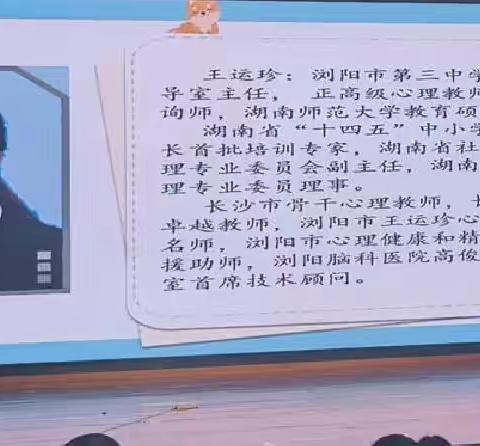 王运珍：浏阳市第三中学
导室主任，正高级心理教师
询师，湖南师范大学教育硕
湖南省“十四五”中小学
长首批培训专家，湖南省社
理专业委员会副主任，湖南
理专业委员理事。
长沙市骨干心理教师，长
卓越教师，浏阳市王运珍心
名师，浏阳市心理健康和精
援助师，浏阳脑科医院高俊
室首席技术顾问。